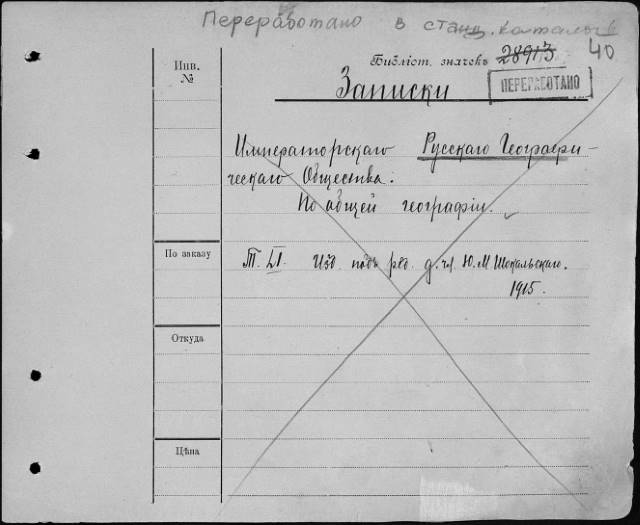 Переработано в станц. каталоге
40
Инв.
№
Библіот. значекъ 28913
ПЕРЕРАБОТАНО
Записки
Императорскаго Русскаго Географи-
ческаго Общества:
По общей географіи.
По заказу
Т. LI. Изд. подъ ред. д. чл. Ю. М Шокальскаго.
1915.
Откуда
Цѣна